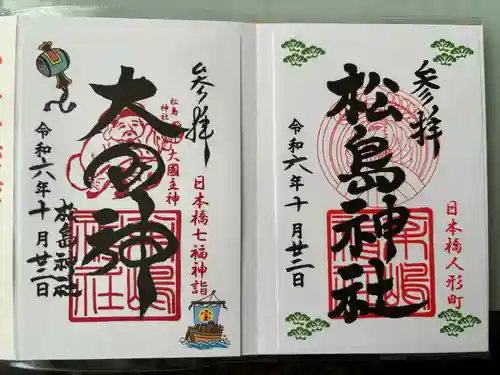 参拝
松島神社
日本橋人形町
令和六年十月廿二日
参拝
松島神社
大國主神
大国神
日本橋七福神詣
宝
松島神社
令和六年十月廿二日